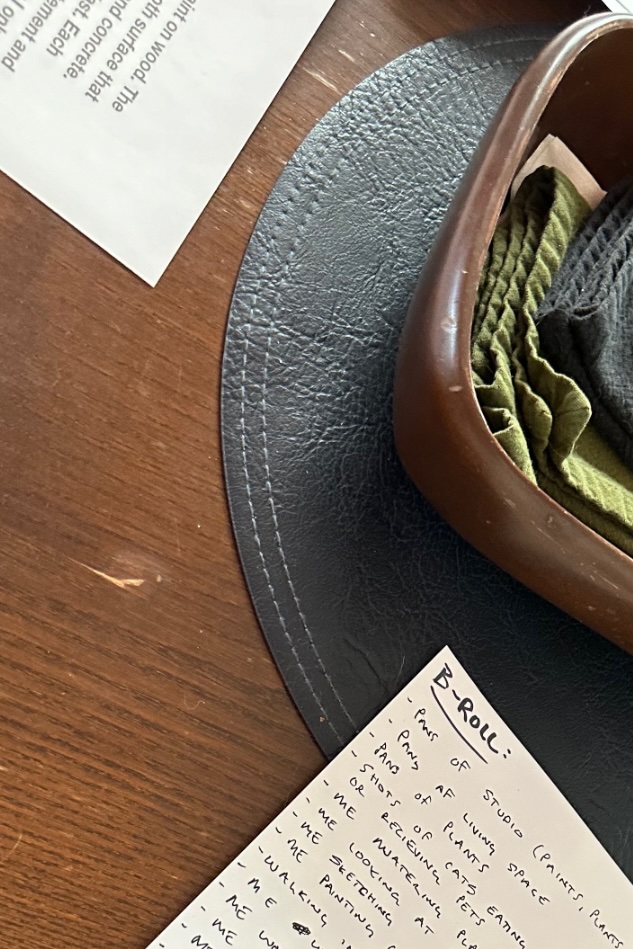 aint on wood. The
oth surface that
and concrete.
est. Each
lement and
B-ROLL:
- PANS OF STUDIO (PAINTS, PLANTS
- PANS OF LIVING SPACE
- PANS OF PLANTS
- SHOTS OF CATS EATING
OR RECIEVING PETS
- ME WATERING PLA
- ME LOOKING AT
- ME SKETCHING
- ME PAINTING
- WALKING
- ME
- ME WA
- ME
- ME